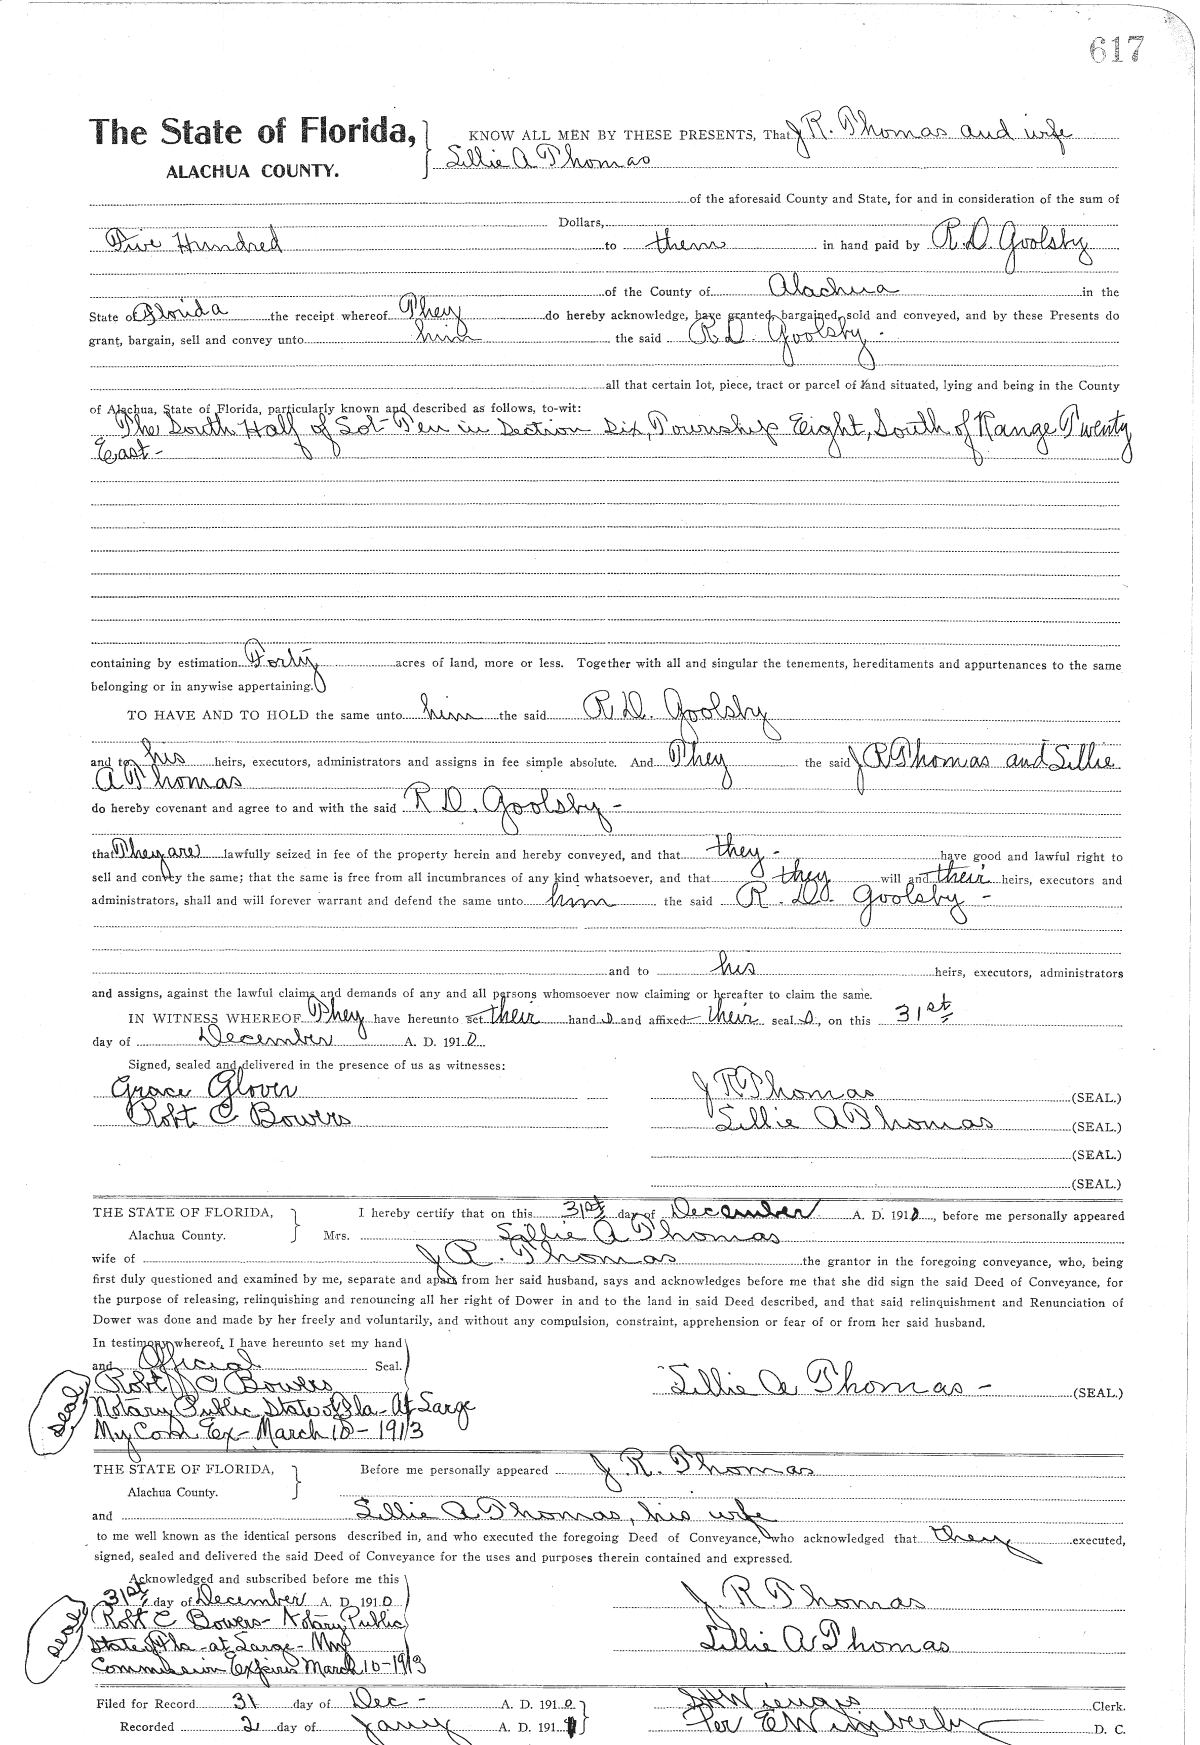 617
The State of Florida, KNOW ALL MEN BY THESE PRESENTS, That J R. Thomas and wife
ALACHUA COUNTY. Lillie A Thomas
of the aforesaid County and State, for and in consideration of the sum of
Dollars,
Five Hundred to them in hand paid by R. D. Goolsby
of the County of Alachua in the
State of Florida the receipt whereof They do hereby acknowledge, have granted, bargained, sold and conveyed, and by these Presents do
grant, bargain, sell and convey unto him the said R D. Goolsby -
all that certain lot, piece, tract or parcel of land situated, lying and being in the County
of Alachua, State of Florida, particularly known and described as follows, to-wit:
The South Half of Lot Ten in Section Six, Township Eight, South of Range Twenty
East -
containing by estimation Forty acres of land, more or less. Together with all and singular the tenements, hereditaments and appurtenances to the same
belonging or in anywise appertaining.
TO HAVE AND TO HOLD the same unto him the said R D. Goolsby
and to his heirs, executors, administrators and assigns in fee simple absolute. And They the said J R Thomas and Lillie
A Thomas
do hereby covenant and agree to and with the said R D. Goolsby -
that They are lawfully seized in fee of the property herein and hereby conveyed, and that they - have good and lawful right to
sell and convey the same; that the same is free from all incumbrances of any kind whatsoever, and that they will and their heirs, executors and
administrators, shall and will forever warrant and defend the same unto him the said R. D. Goolsby -
and to his heirs, executors, administrators
and assigns, against the lawful claims and demands of any and all persons whomsoever now claiming or hereafter to claim the same.
IN WITNESS WHEREOF They have hereunto set their hand s and affixed their seal s, on this 31st
day of December A. D. 1910
Signed, sealed and delivered in the presence of us as witnesses:
Grace Glover J R Thomas (SEAL.)
Robt. C Bowers Lillie A Thomas (SEAL.)
(SEAL.)
(SEAL.)
THE STATE OF FLORIDA, I hereby certify that on this 31st day of December A. D. 1910, before me personally appeared
Alachua County. Mrs. Lillie A Thomas
wife of J R. Thomas the grantor in the foregoing conveyance, who, being
first duly questioned and examined by me, separate and apart from her said husband, says and acknowledges before me that she did sign the said Deed of Conveyance, for
the purpose of releasing, relinquishing and renouncing all her right of Dower in and to the land in said Deed described, and that said relinquishment and Renunciation of
Dower was done and made by her freely and voluntarily, and without any compulsion, constraint, apprehension or fear of or from her said husband.
In testimony whereof, I have hereunto set my hand
and Official Seal.
Robt C Bowers Lillie A Thomas - (SEAL.)
seal Notary Public State of Fla - At Large
My Com Ex - March 10 - 1913
THE STATE OF FLORIDA, Before me personally appeared J. R. Thomas
Alachua County.
and Lillie A Thomas, his wife
to me well known as the identical persons described in, and who executed the foregoing Deed of Conveyance, who acknowledged that they executed,
signed, sealed and delivered the said Deed of Conveyance for the uses and purposes therein contained and expressed.
Acknowledged and subscribed before me this
31st day of December A. D. 1910 J. R Thomas
seal Robt C Bowers - Notary Public
State of Fla - at Large - My Lillie A Thomas
Commission Expires March 10 - 1913
Filed for Record 31 day of Dec - A. D. 1910 Clerk.
Recorded 2 day of Jany A. D. 1911 Per E Wimberly D. C.